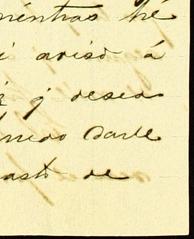 mientras hé
i avisó á
z y desea
Darle
asto de